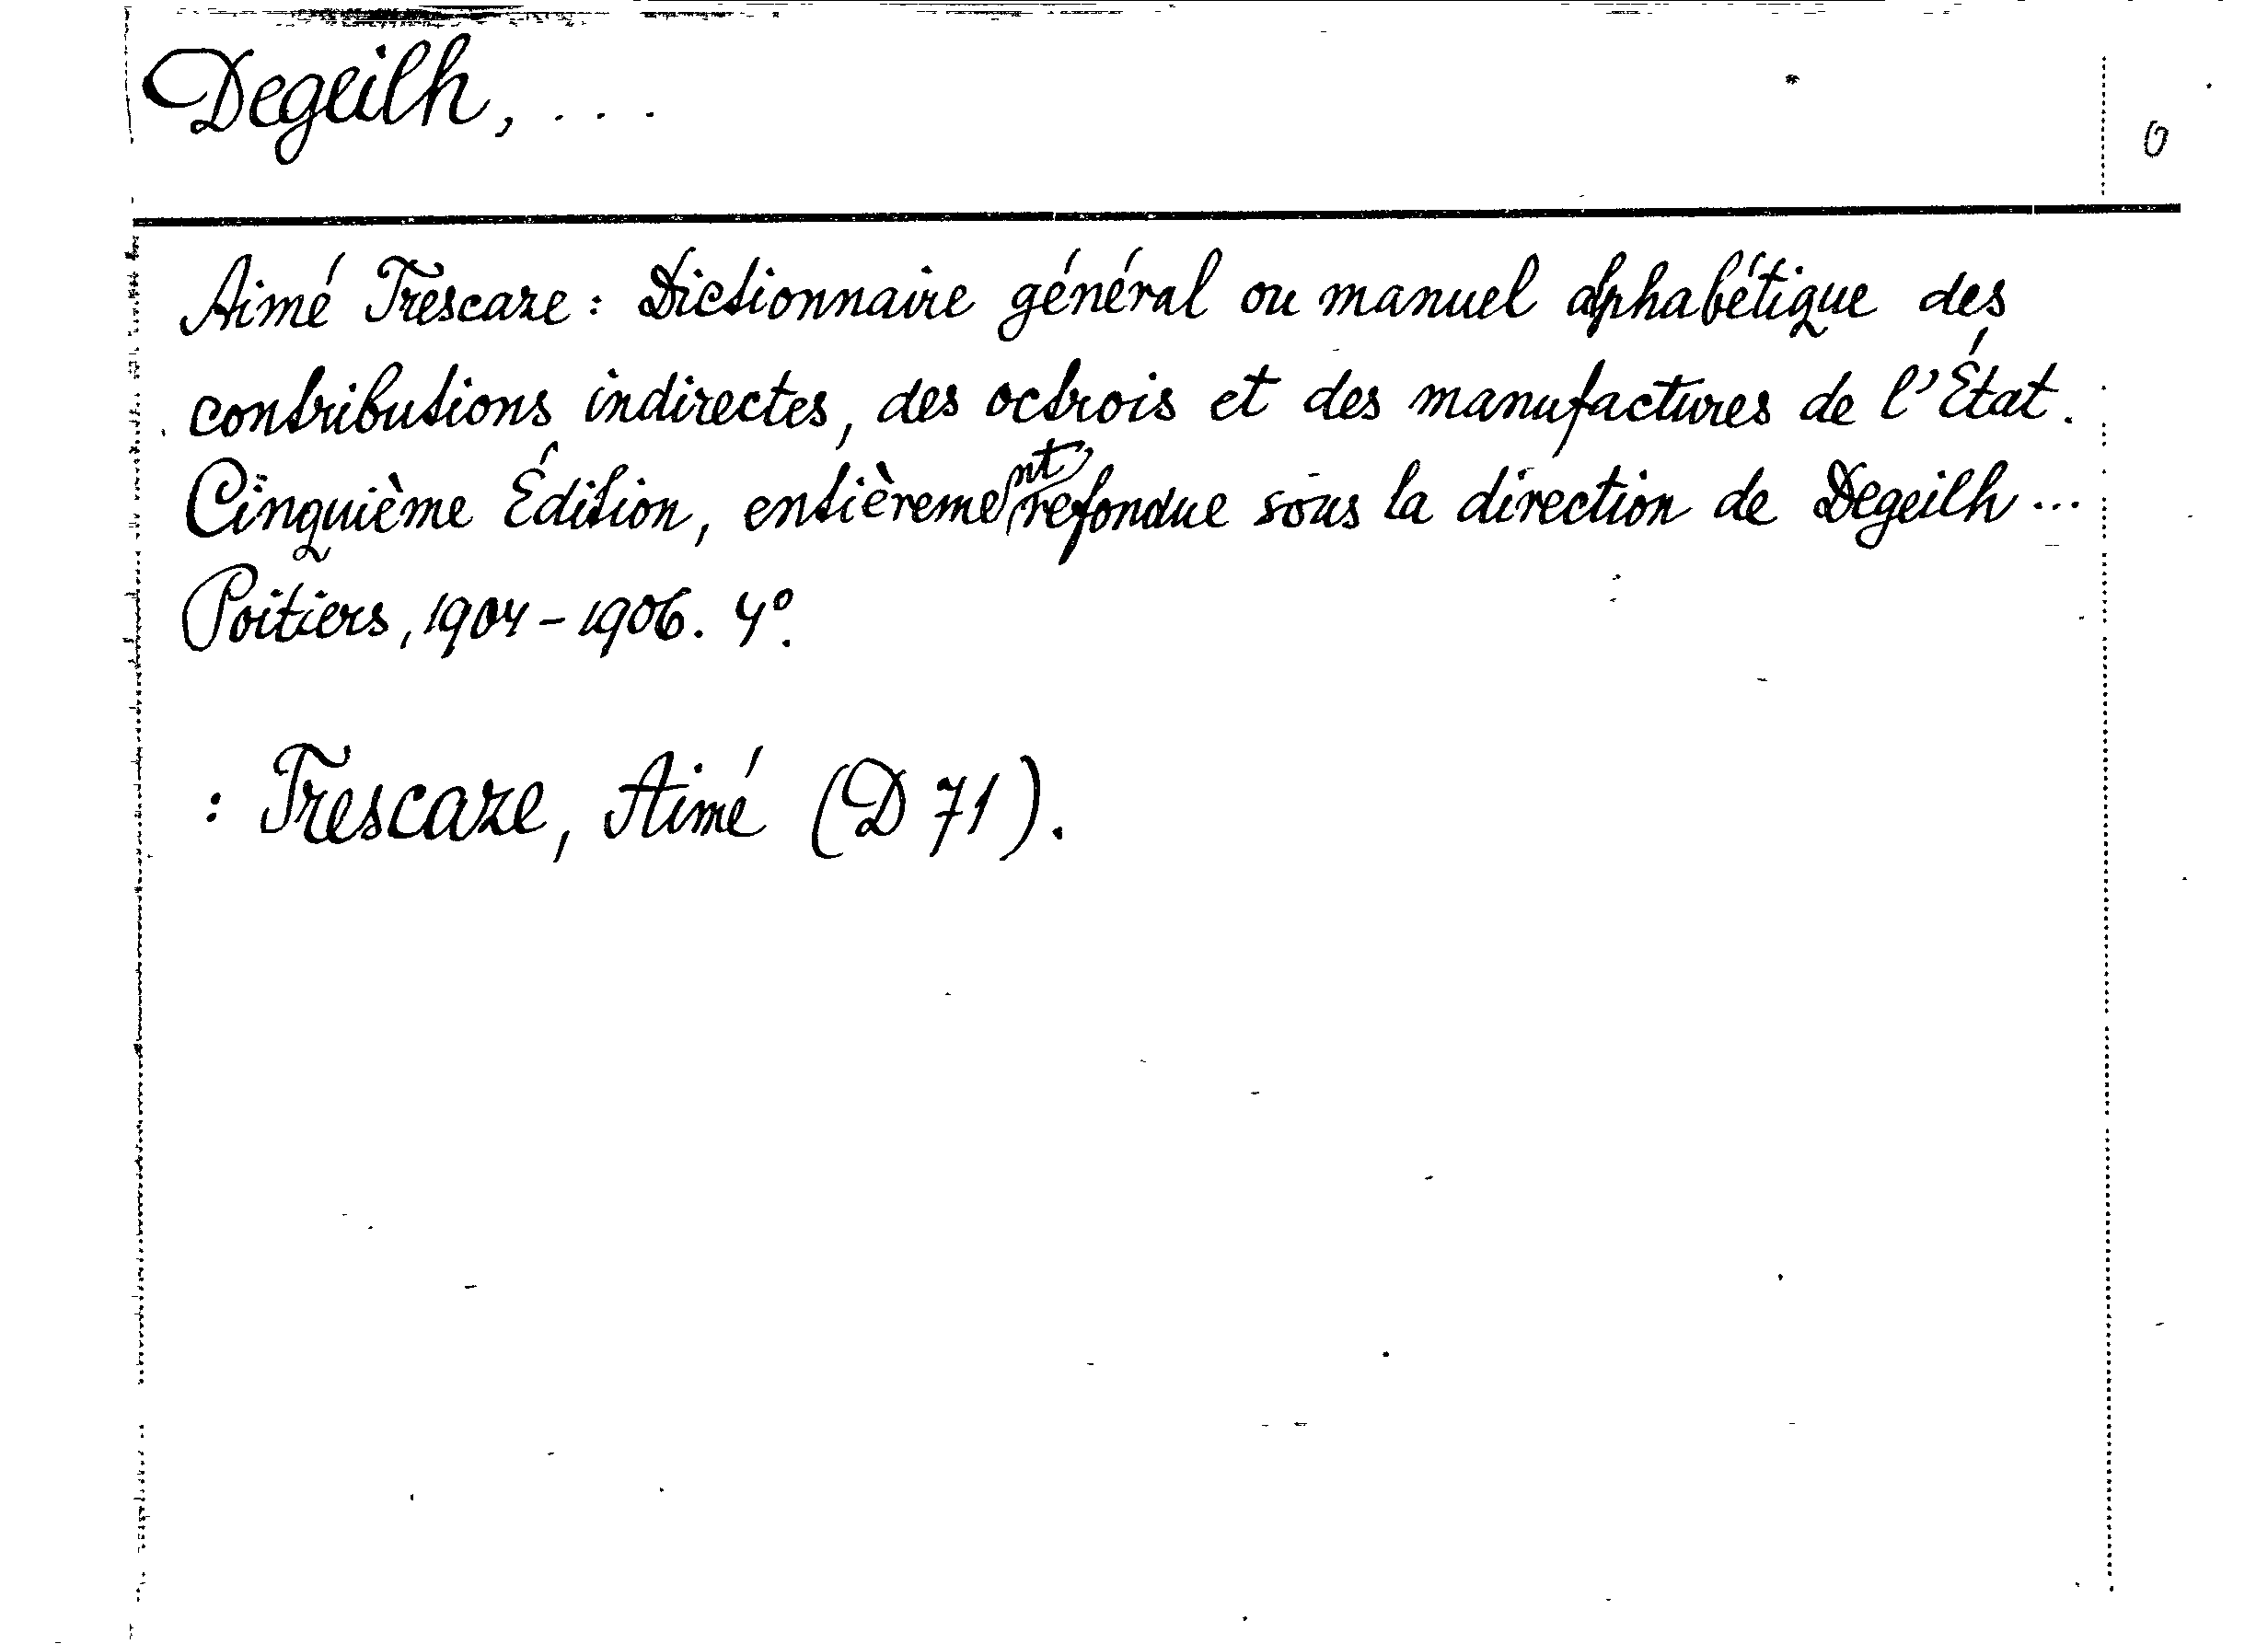 Degeilh, ...
0
Aimé Trescaze : Dictionnaire général ou manuel alphabétique des
contributions indirectes, des octrois et des manufactures de l'État.
Cinquième Édition, entièrement refondue sous la direction de Degeilh ...
Poitiers, 1904-1906. 4°.
: Trescaze, Aimé (D 71).